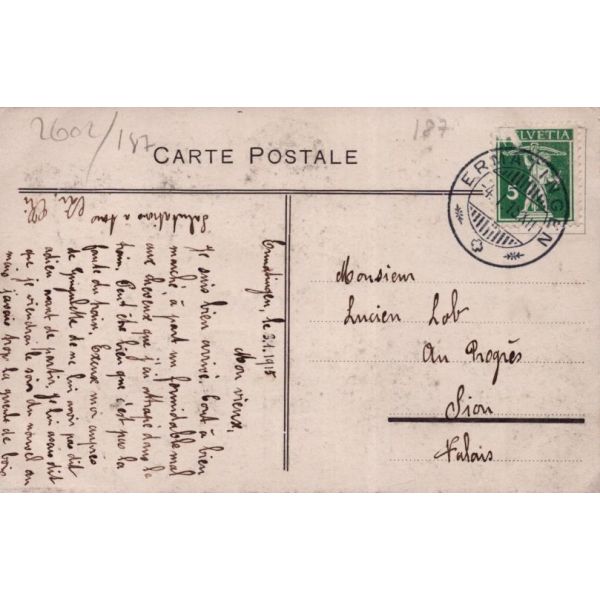 2602/187
187
CARTE POSTALE
HELVETIA
5
ERMATINGEN
Monsieur
Lucien Lob
Au Progrès
Sion
Valais
Ermatingen, le 3.1.1915
Mon vieux,
Je suis bien arrivé. Tout a bien
marché, à part un formidable mal
aux cheveux que j'ai attrapé dans le
train. Peut être bien que c'est pas la
faute du train. Excuse moi auprès
de de ne lui avoir pas dit
adieu avant de partir. Je lui avais dit
que je viendrai le soir du nouvel an
mais j'avais trop la gueule de bois
Salutations à tous